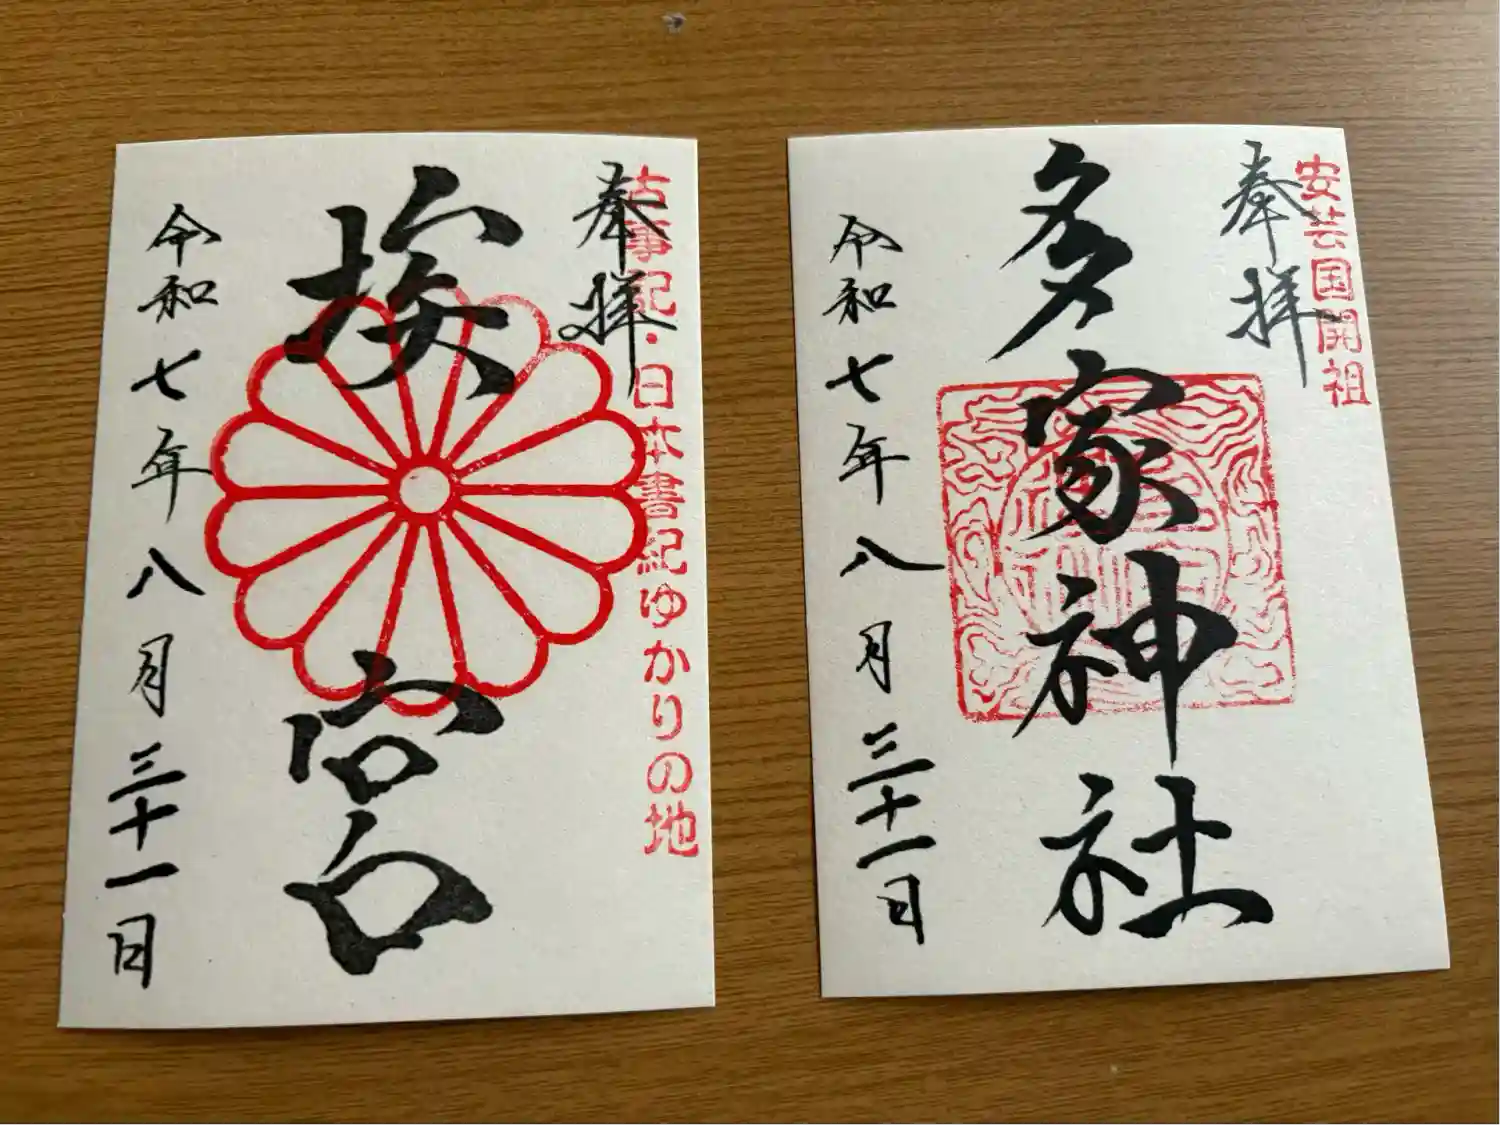 古事記・日本書紀ゆかりの地
奉拝
埃宮
令和七年八月三十一日
安芸国開祖
奉拝
多家神社
令和七年八月三十一日